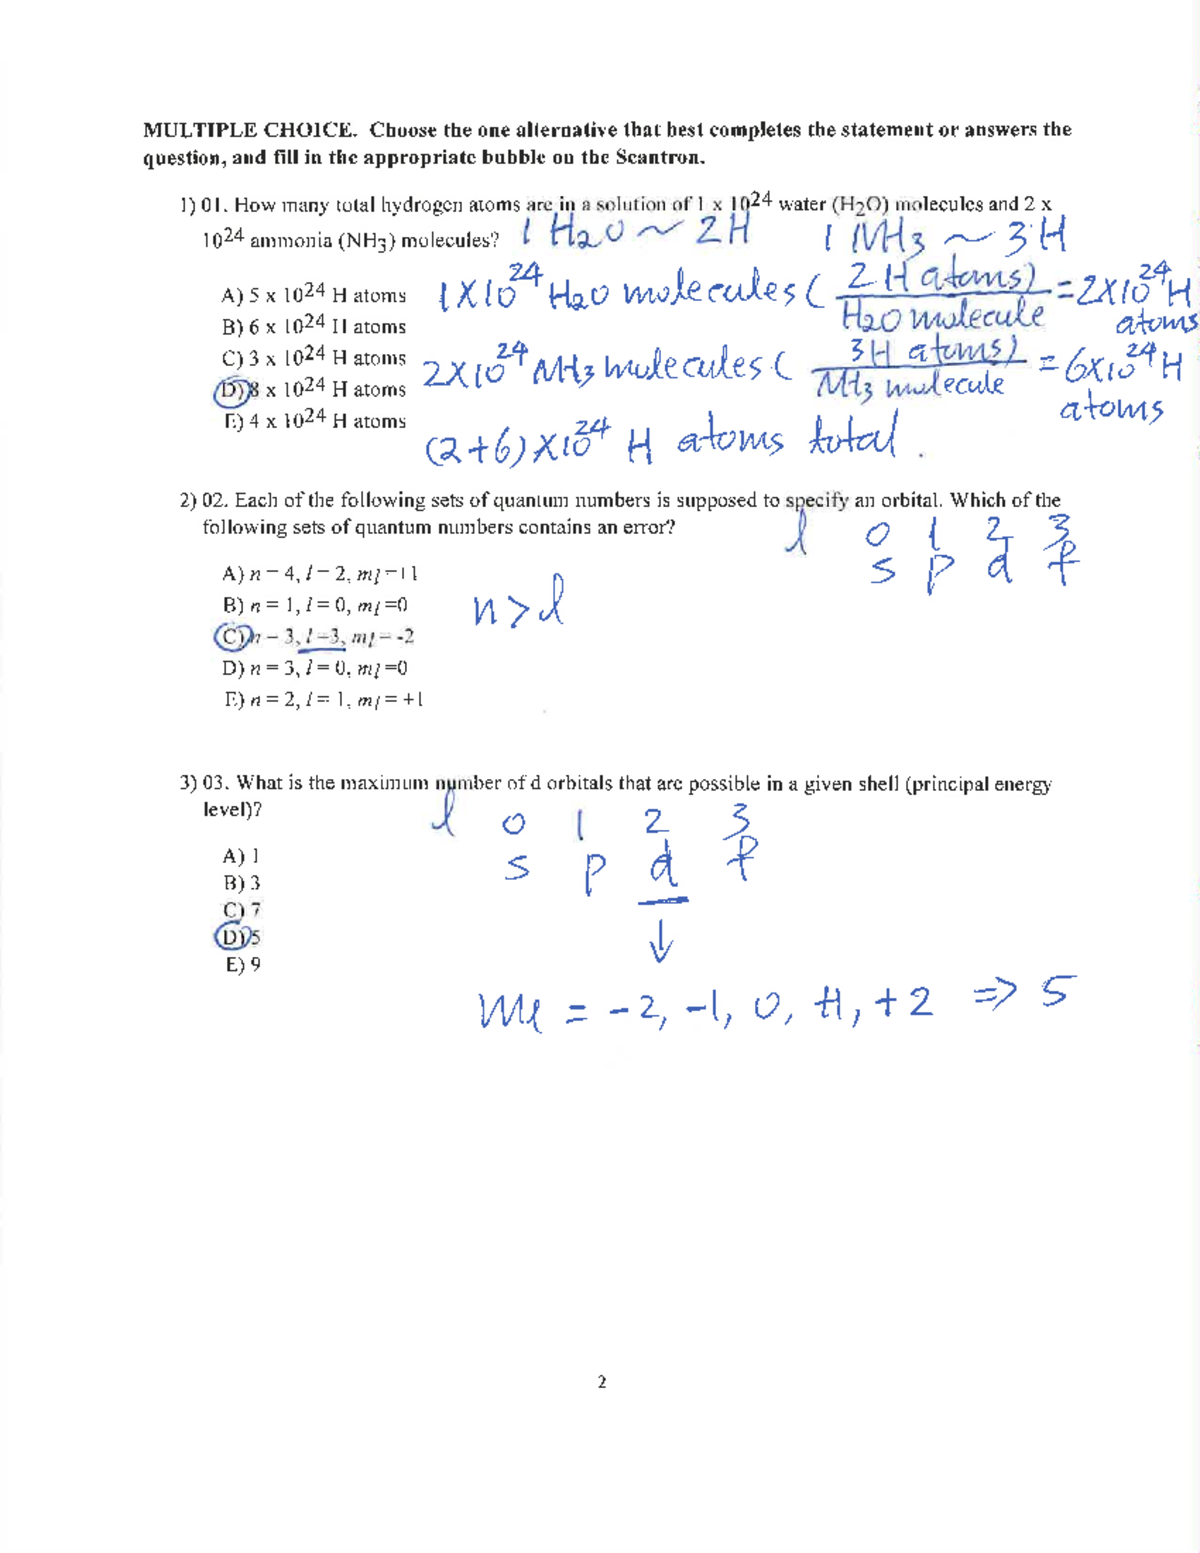 MULTIPLE CHOICE. Choose the one alternative that best completes the statement or answers the
question, and fill in the appropriate bubble on the Scantron.
1) 01. How many total hydrogen atoms are in a solution of 1 x 10²⁴ water (H₂O) molecules and 2 x
10²⁴ ammonia (NH₃) molecules?
1 H₂O ~ 2H 1 NH₃ ~ 3H
A) 5 x 10²⁴ H atoms
B) 6 x 10²⁴ H atoms
C) 3 x 10²⁴ H atoms
D) 8 x 10²⁴ H atoms
E) 4 x 10²⁴ H atoms
1X10²⁴ H₂O molecules (2 H atoms) / H₂O molecule = 2X10²⁴ H atoms
2X10²⁴ NH₃ molecules (3H atoms) / NH₃ molecule = 6X10²⁴ H atoms
(2+6)X10²⁴ H atoms total.
2) 02. Each of the following sets of quantum numbers is supposed to specify an orbital. Which of the
following sets of quantum numbers contains an error?
l 0 1 2 3
s p d f
A) n = 4, l = 2, ml =+1
B) n = 1, l = 0, ml =0
C) n = 3, l =3, ml = -2
D) n = 3, l = 0, ml =0
E) n = 2, l = 1, ml = +1
n>l
3) 03. What is the maximum number of d orbitals that are possible in a given shell (principal energy
level)?
l 0 1 2 3
s p d f
A) 1
B) 3
C) 7
D) 5
E) 9
↓
ml = -2, -1, 0, +1, +2 => 5
2